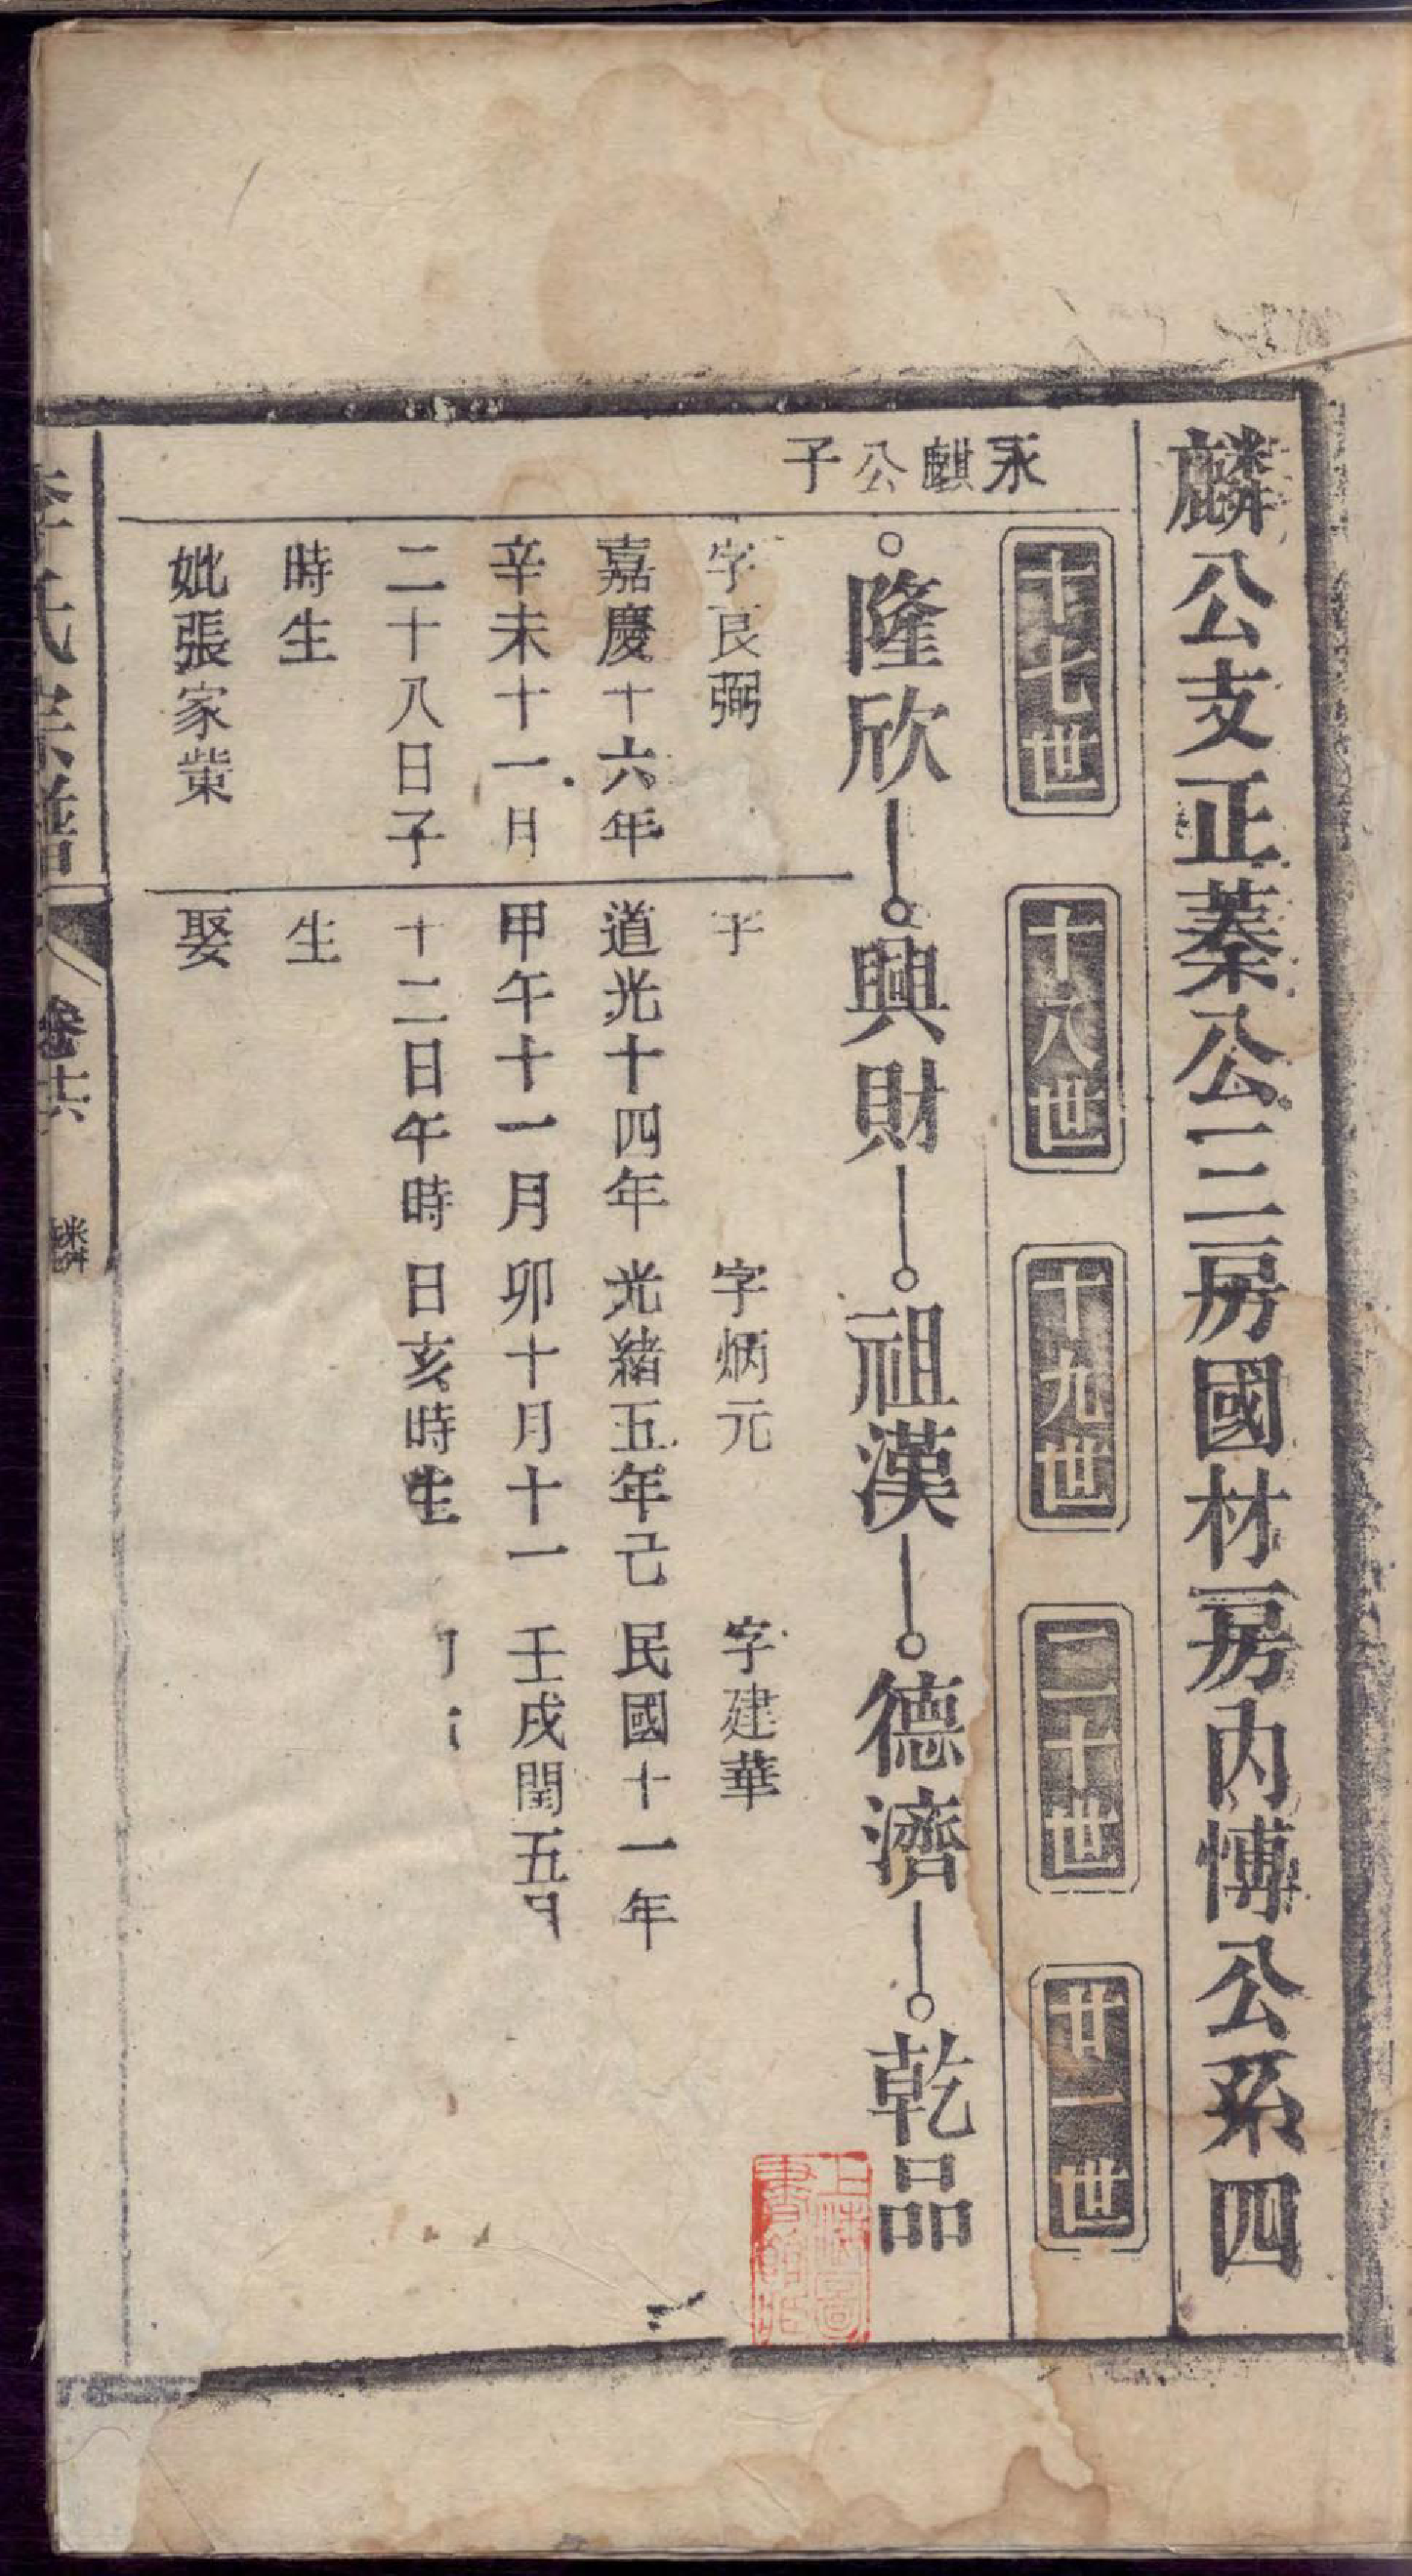 麟公支正蓁公三房國材一房內愽公系四
十七世
十八世
十九世
二十世
廿一世
永麒公子
隆欣
興財
祖漢
德濟
乾品
字良弼
嘉慶十六年
辛未十一月
二十八日子
時生
妣張家葉
字
道光十四年
甲午十一月
十二日午時
生
娶
字炳元
光緒五年己
卯十月十一
日亥時生
字建華
民國十一年
壬戌閏五月
李氏宗譜
卷十六
麟
上海圖書館藏